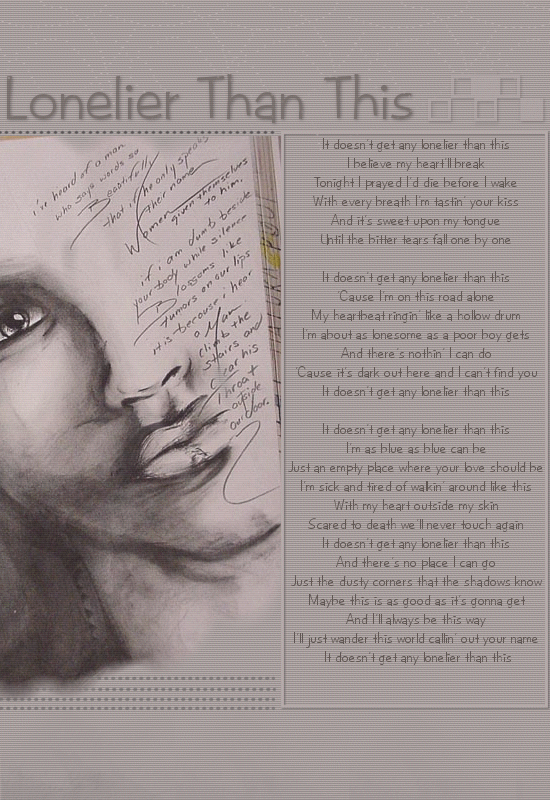 Lonelier Than This
i've heard of a man
who says words so
Beautifully
that if he only speaks
their name
Women given themselves
to him.
if i am dumb beside
your body while silence
Blossoms like
tumors on our lips
it is because i hear
a Man
climb the
stairs and
Clear his
Throat
outside
our door.
It doesn't get any lonelier than this
I believe my heart'll break
Tonight I prayed I'd die before I wake
With every breath I'm tastin' your kiss
And it's sweet upon my tongue
Until the bitter tears fall one by one
It doesn't get any lonelier than this
'Cause I'm on this road alone
My heartbeat ringin' like a hollow drum
I'm about as lonesome as a poor boy gets
And there's nothin' I can do
'Cause it's dark out here and I can't find you
It doesn't get any lonelier than this
It doesn't get any lonelier than this
I'm as blue as blue can be
Just an empty place where your love should be
I'm sick and tired of walkin' around like this
With my heart outside my skin
Scared to death we'll never touch again
It doesn't get any lonelier than this
And there's no place I can go
Just the dusty corners that the shadows know
Maybe this is as good as it's gonna get
And I'll always be this way
I'll just wander this world callin' out your name
It doesn't get any lonelier than this